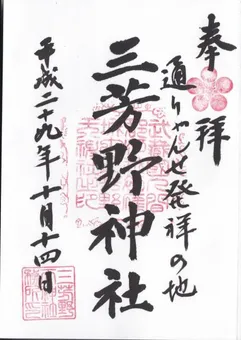 奉拝
通りゃんせ発祥の地
三芳野神社
平成二十九年十月十四日